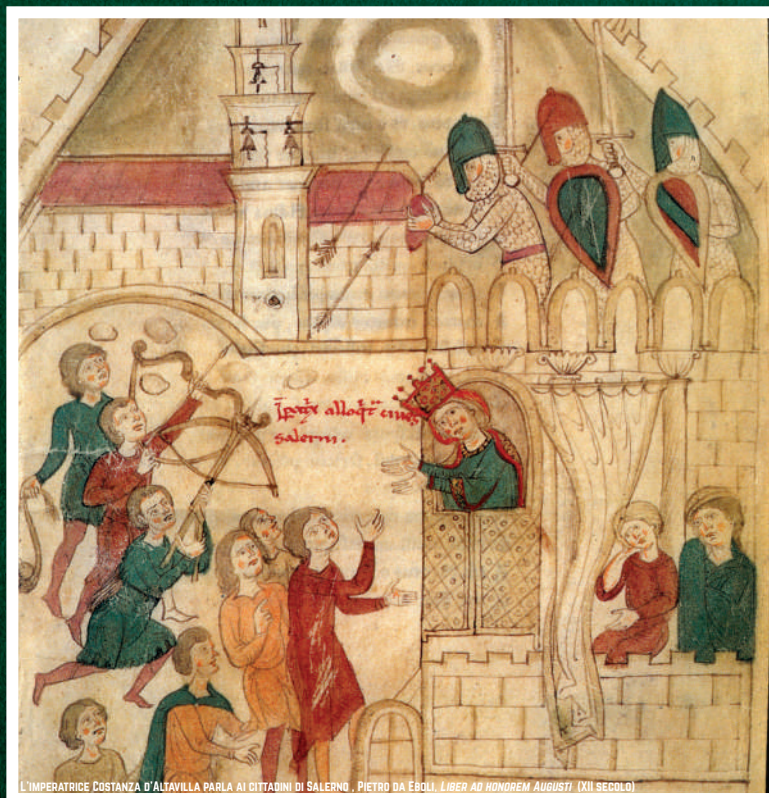 Ip̄at̄x alloq̄t̄ ciues
salerni.
L'imperatrice Costanza d'Altavilla parla ai cittadini di Salerno , Pietro da Eboli, Liber ad honorem Augusti (XII secolo)